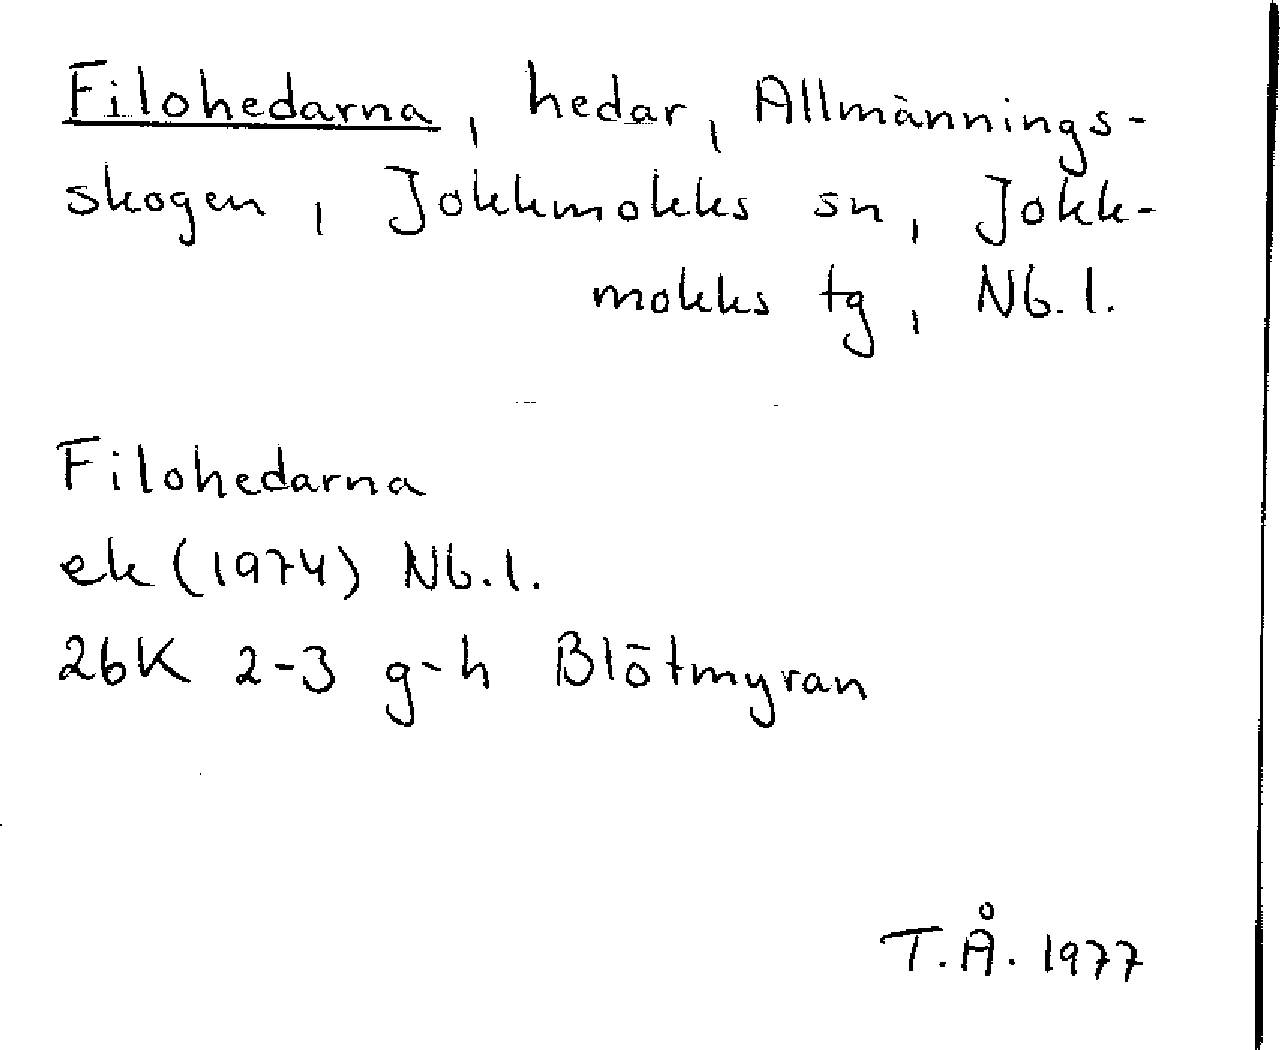 Filohedarna, hedar, Allmännings-
skogen, Jokkmokks sn, Jokk-
mokks tg, Nb. l.
Filohedarna
ek (1974) Nb. l.
26K 2-3 g-h Blötmyran
T.Å. 1977